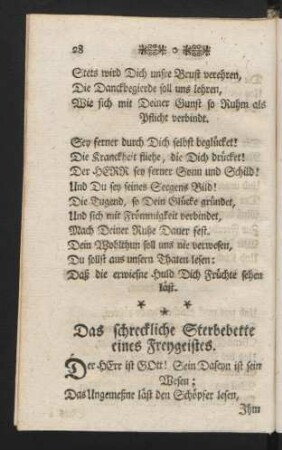 28
Stets wird Dich unsre Brust verehren,
Die Danckbegierde soll uns lehren,
Wie sich mit Deiner Gunst so Ruhm als
Pflicht verbindt.
Sey ferner durch Dich selbst beglücket!
Die Kranckheit fliehe, die Dich drücket!
Der HERR sey ferner Sonn und Schild!
Und Du sey seines Seegens Bild!
Die Tugend, so Dein Glücke gründet,
Und sich mit Frömmigkeit verbindet,
Mach Deiner Ruhe Dauer fest.
Dein Wohlthun soll uns nie verwesen,
Du sollst aus unsern Thaten lesen:
Daß die erwießne Huld Dich Früchte sehen
läst.
* * *
Das schreckliche Sterbebette
eines Freygeistes.
Der HErr ist GOtt! Sein Daseyn ist sein
Wesen;
Das Ungemeßne läst den Schöpfer lesen,
Ihm